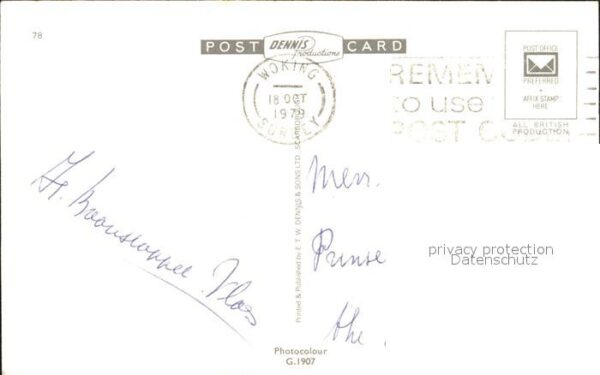 78
POST CARD
DENNIS
Productions
WOKING
18 OCT
1979
SURREY
REMEM
to use
POST CODE
POST OFFICE
PREFERRED
AFFIX STAMP
HERE
ALL BRITISH
PRODUCTION
Printed & Published by E. T. W. DENNIS & SONS LTD. SCARBOROUGH
the
privacy protection
Datenschutz
Photocolour
G.1907